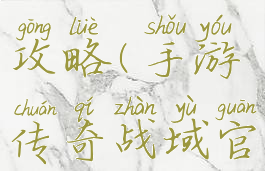 gōng lüè shǒu yóu
攻略(手游
chuán qí zhàn yù guān
传奇战域官